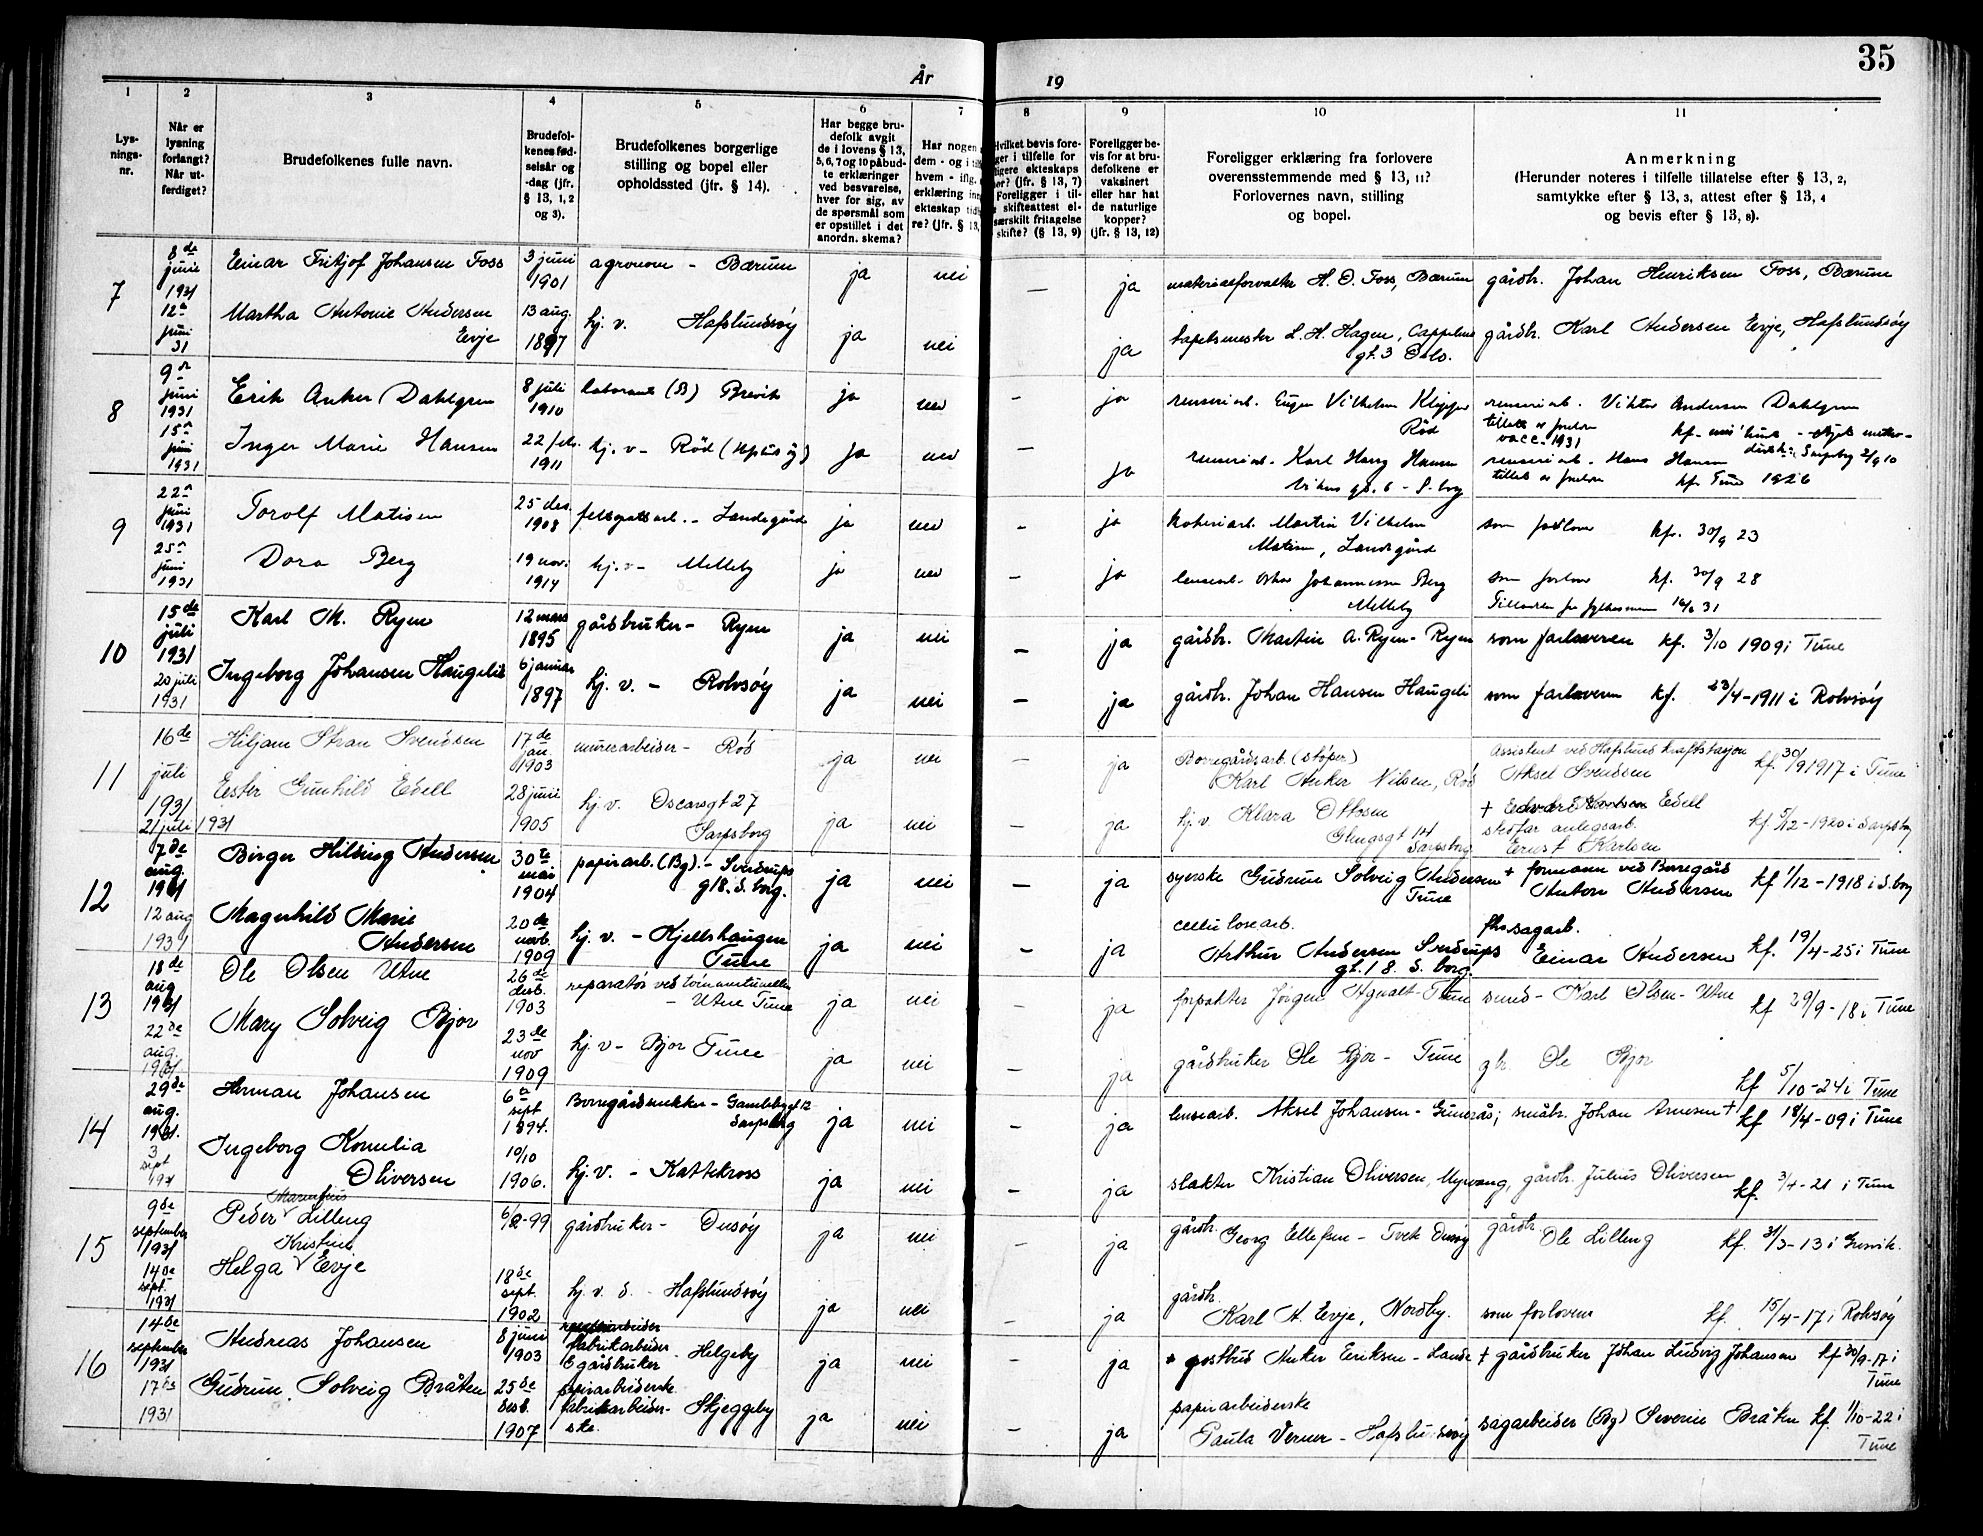 35
År 19
1 2 3 4 5 6 7 8 9 10 11
Lys-
nings-
nr.
Når er
lysning
forlangt?
Når ut-
ferdiget?
Brudefolkenes fulle navn.
Brudefol-
kenes fød-
selsår og
-dag (jfr.
§ 13, 1, 2
og 3).
Brudefolkenes borgerlige
stilling og bopel eller
opholdssted (jfr. § 14).
Har begge bru-
defolk avgit
de i lovens § 13,
5, 6, 7 og 10 påbud-
te erklæringer
ved besvarelse,
hver for sig, av
de spørsmål som
er opstillet i det
anordn. skema?
Har nogen
dem - og i
hvem - iflg.
erklæring
ekteskap
re? (jfr. § 13,
Hvilket bevis fore-
ger i tilfelle for
ligere ekteskaps
(jfr. § 13, 7)
Foreligger i til-
skifteattest el-
særskilt fritagelse
skifte? (§ 13, 9)
Foreligger be-
vis for at bru-
defolkene er
vaksinert
eller har hat
de naturlige
kopper?
(jfr. § 13, 12)
Foreligger erklæring fra forlovere
overensstemmende med § 13, 11?
Forlovernes navn, stilling
og bopel.
Anmerkning
(Herunder noteres i tilfelle tillatelse efter § 13, 2,
samtykke efter § 13, 3, attest efter § 13, 4
og bevis efter § 13, 8).
7 8de juni 1931 Einar Fritjof Johansen Foss 3 juni 1901 agronom - Bærum ja nei — ja materialforvalter H. O. Foss, Bærum gårdbr. Johan Henriksen Foss, Bærum
12te juni 31 Martha Antonie Andersen Evje 13 aug. 1897 hj. v. Hafslundsøy ja nei ja tapetsmester L. H. Hagen, Cappelens gt. 3 Oslo. gårdbr. Karl Andersen Evje, Hafslundsøy
8 9de juni 1931 Erik Anker Dahlgren 8 juli 1910 laborant (B) Brevik ja nei — ja renseriarb. Eugen Vilhelm Rød renseriarb. Viktor Andersen Dahlgren
vacc. 1931
15de juni 1931 Inger Marie Hansen 22 feb. 1911 hj. v - Rød ja nei — ja renseriarb. Karl Harry Hansen renseriarb. Hans Hansen
kf. Tune 1926
9 22de juni 1931 Torolf Matisen 25 des. 1908 feltspatsarb. - Landsgård ja nei — ja kokeriarb. Martin Vilhelm Matisen, Landsgård som forlover kf. 30/9 23
25de juni 1931 Dora Berg 19 nov. 1914 hj. v - Melleby ja nei — ja lensearb. Oskar Johannessen Berg Melleby som forlover kf. 30/9 28
10 15de juli 1931 Karl M. Ryen 12 mars 1895 gårdbruker - Ryen ja nei — ja gårdbr. Martin A. Ryen - Ryen som forloveren kf. 3/10 1909 i Tune
20 juli 1931 Ingeborg Johansen Haugeli 6 januar 1897 hj. v. - Rolvsøy ja nei — ja gårdbr. Johan Hansen Haugeli som forloveren kf. 23/4-1911 i Rolvsøy
11 16de juli 1931 Hiljam Stran Svendsen 17de jan. 1903 murerarbeider - Rød ja nei — ja Borregårdsarb. (støper) Karl Anker Nilsen, Rød Assistent ved Hafslund kraftstasjon Aksel Svendsen kf. 30/9 1917 i Tune
21 juli 1931 Ester Gunhild Edell 28 juni 1905 hj. v. Oscarsgt 27 Sarpsborg ja nei — ja hj. v. Klara Ottosen Glengsgt 14 Sarpsborg † Edvard Karlsen Edell
stefar anlegsarb. Ernst Karlsen kf 5/12-1920 i Sarpsborg
12 7de aug. 1931 Birger Hilding Andersen 30te mai 1904 papirarb. (Bg). - Sverdrups gt 8. S. borg. ja nei — ja syerske Gudrun Solveig Andersen Tune † formann ved Borregård Anton Andersen kf 1/12-1918 i S. borg
12 aug 1931 Magnhild Marie Andersen 20de novb. 1909 hj. v. - Kjellshaugen Tune ja nei — ja cellulosearb. Arthur Andersen Sverdrups gt. 18. S. borg. sagarb. Einar Andersen kf. 19/4-25 i Tune
13 18de aug 1931 Ole Olsen Utne 26de desb. 1903 reparatør ved - Utne Tune ja nei — ja forpakter Jørgen Agnalt - Tune smed - Karl Olsen - Utne kf 29/9-18 i Tune
22de aug. 1931 Mary Solveig Bjor 23de nov 1909 hj. v - Bjor Tune ja nei — ja gårdbruker Ole Bjor - Tune gbr. Ole Bjor kf 5/10-24 i Tune
14 29de aug. 1931. Herman Johansen 6te sept 1894. Borregårdsnekker - Gamlebygt 12 Sarpsborg ja nei — ja lensearb. Aksel Johansen - Gunerås; småbr. Johan Arnesen † kf 18/4-09 i Tune
3 sept 1931 Ingeborg Kornelia Oliversen 19/10 1906. hj. v. - Kattekross ja nei — ja slakter Kristian Oliversen, Myrvang, gårdbr. Julius Oliversen kf. 3/4-21 i Tune
15 9de september 1931 Peder Marenfius Lilleng 6/2-99 gårdbruker - Onsøy ja nei — ja gårdbr. Georg Ellefsen - Tvete Onsøy gårdbr. Ole Lilleng kf. 31/3-13 i Gresvik.
14de sept. 1931 Helga Kristine Evje 18de sept. 1902 hj. v. d. Hafslundsøy ja nei — ja gårdbr. Karl A. Evje, Nordby. som forloveren kf. 15/4-17 i Rolvsøy
16 14de september 1931 Andreas Johansen 8 juni 1903 fabrikarbeider & gårdbruker - Helgeby ja nei — ja postbud Anker Eriksen - Lande † gårdbruker Johan Ludvig Johansen kf 30/9-17 i Tune
17de 1931 Gudrun Solveig Bråten 25de desb. 1907 papirarbeiderske fabrikarbeider-ske. Skjeggeby ja nei — ja papirarbeiderske Paula Verner - Hafslundsøy sagarbeider (Bg) Severin Bråten kf. 1/10-22 i Tune